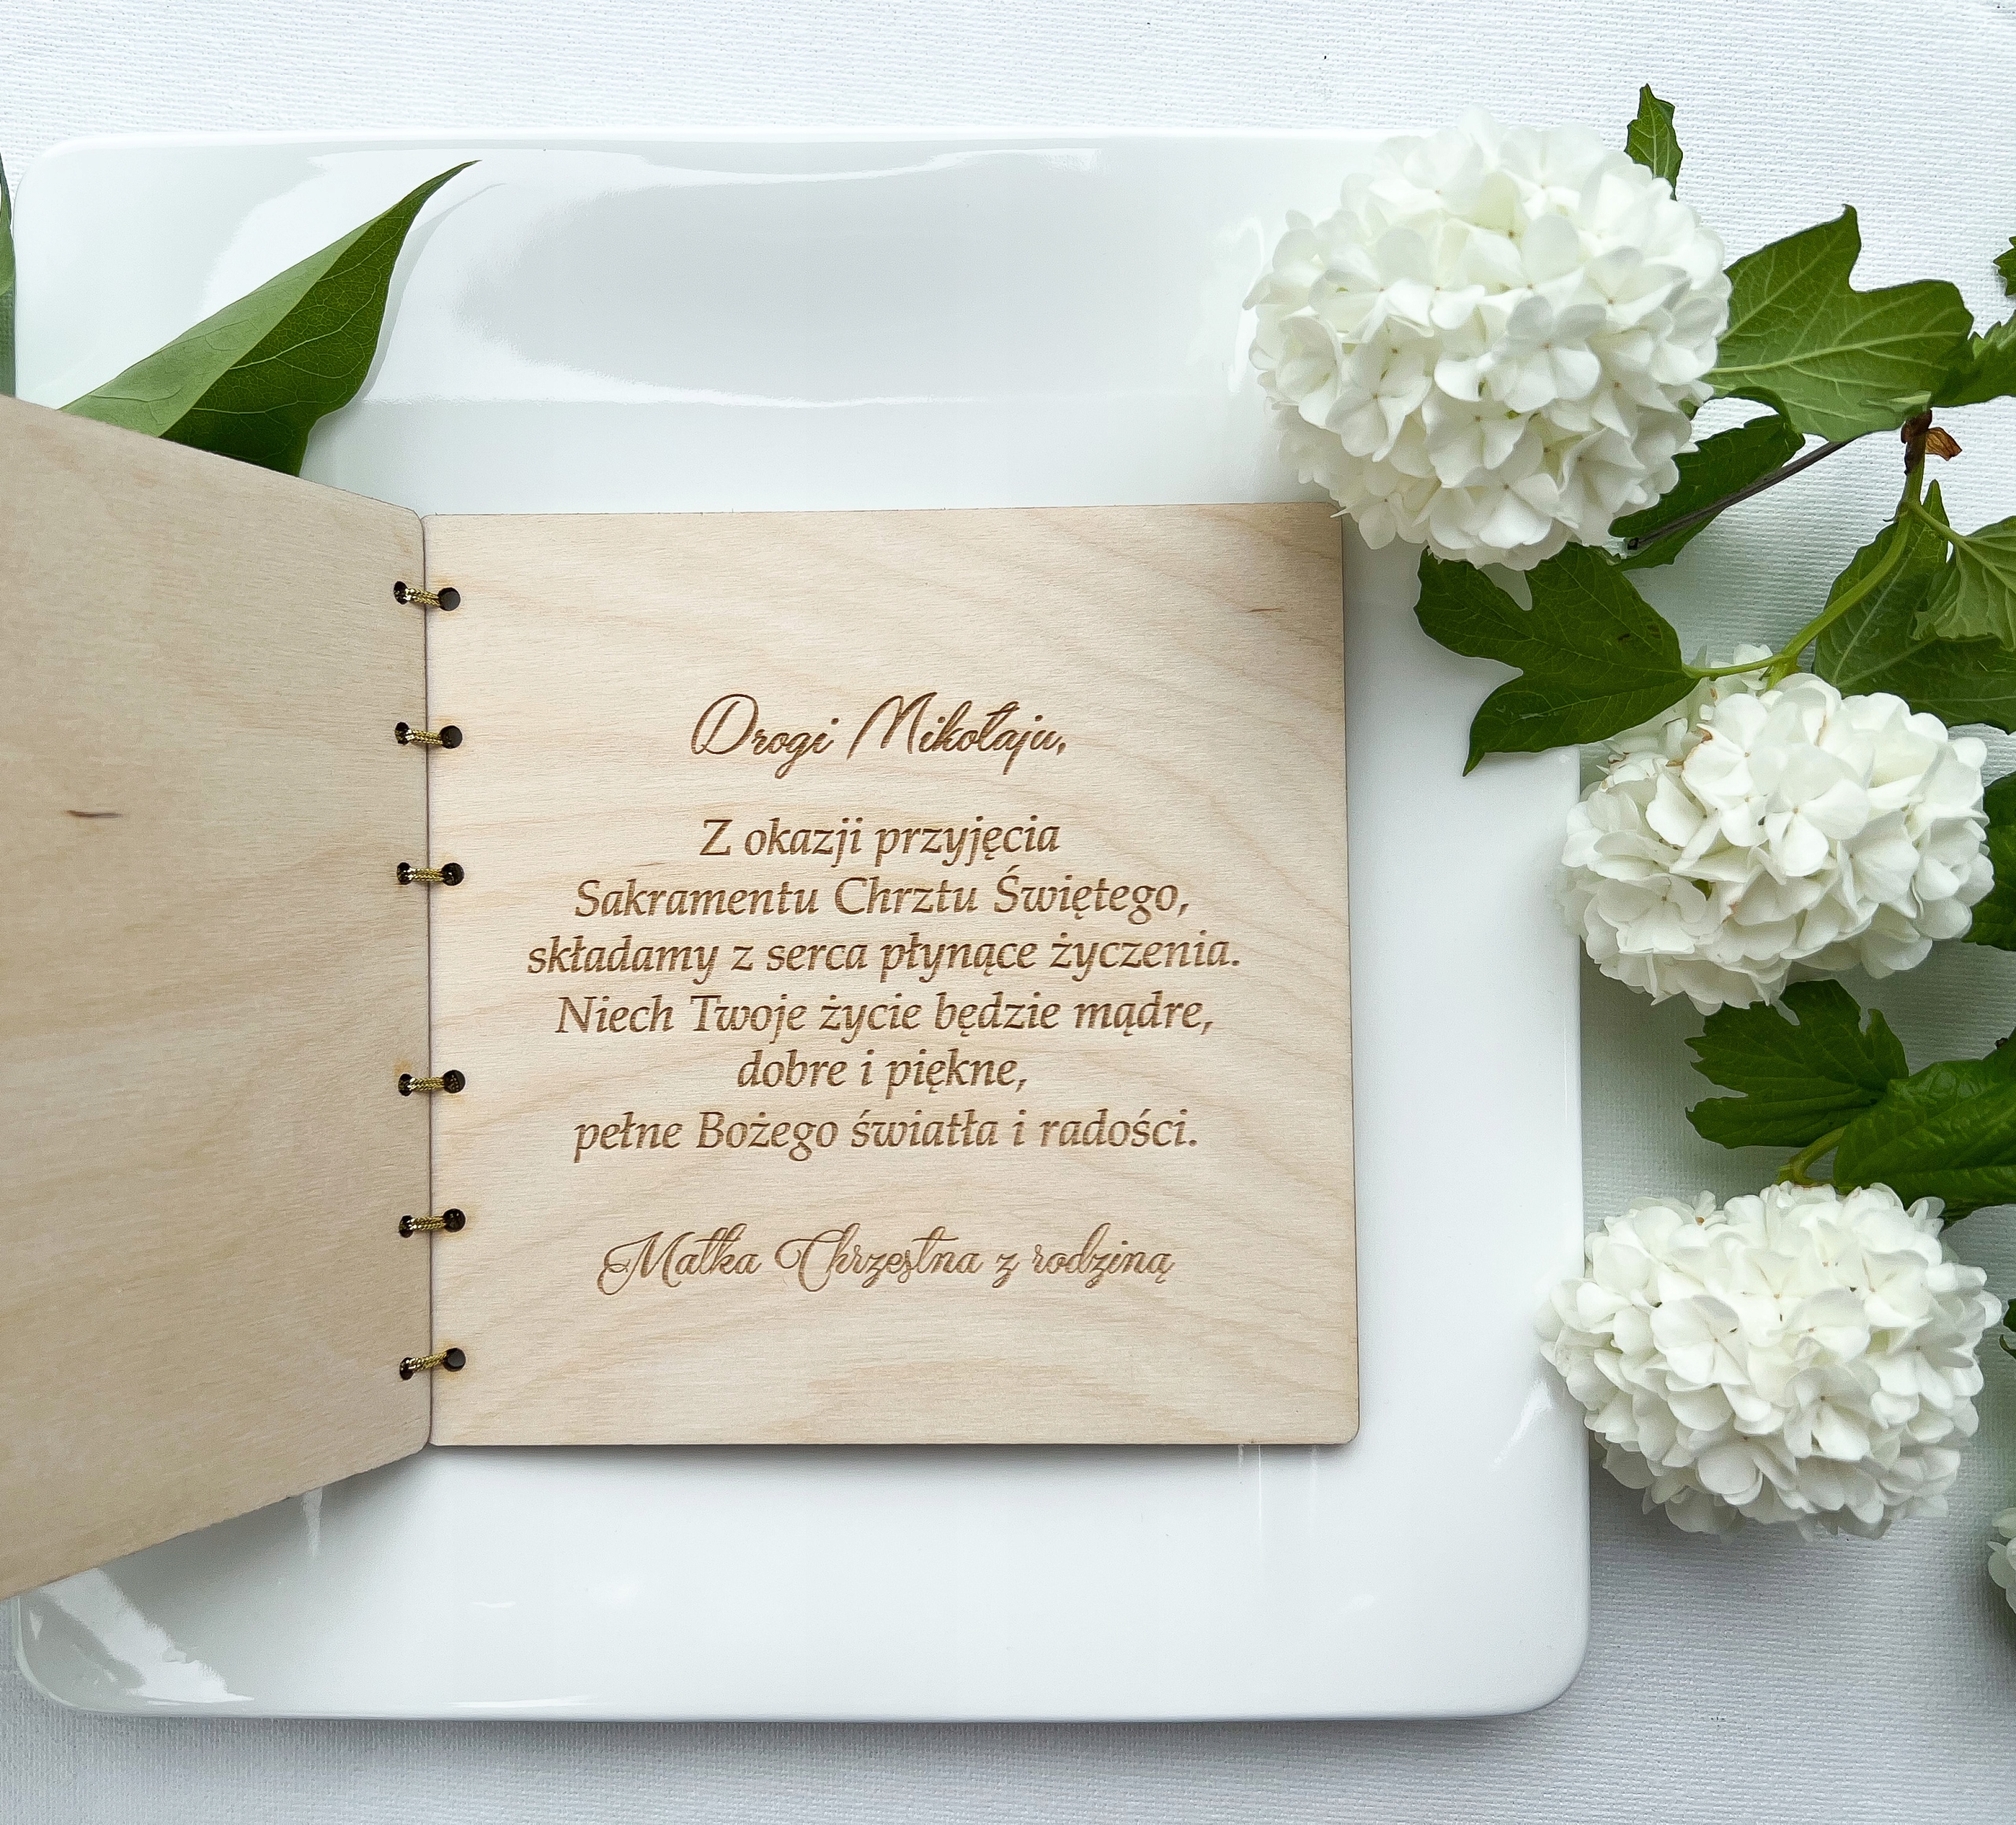 Drogi Mikołaju,
Z okazji przyjęcia
Sakramentu Chrztu Świętego,
składamy z serca płynące życzenia.
Niech Twoje życie będzie mądre,
dobre i piękne,
pełne Bożego światła i radości.
Matka Chrzestna z rodziną